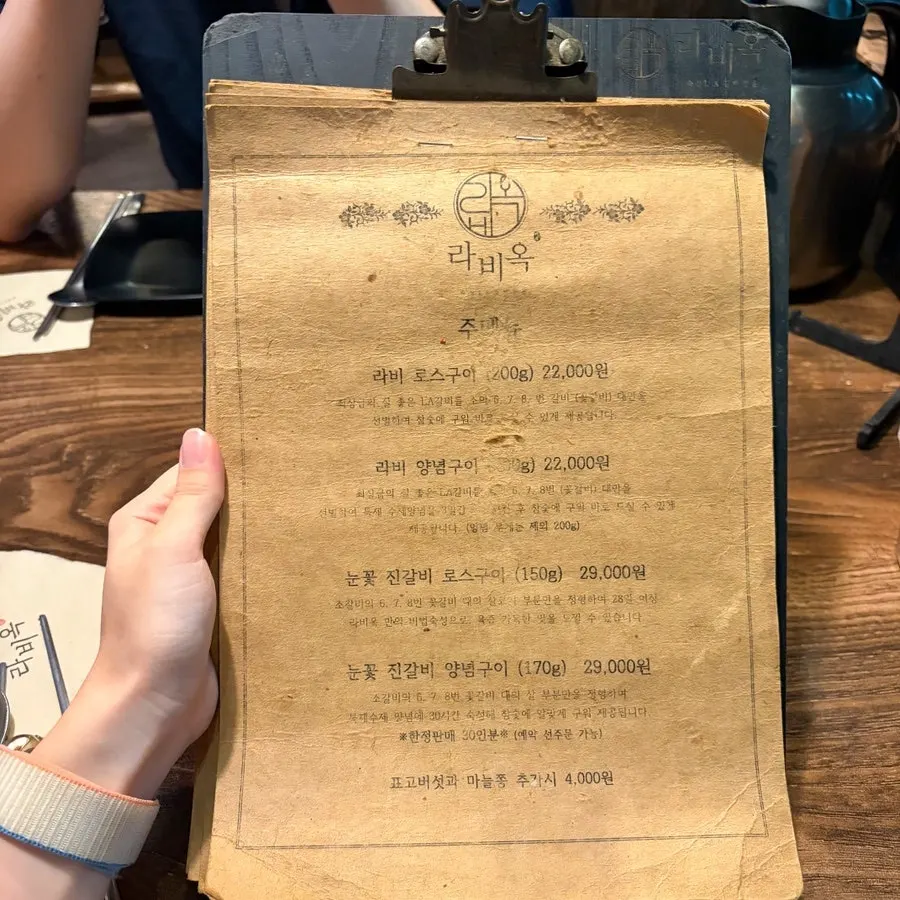 라비옥
라비옥
라비 로스구이 (200g) 22,000원
최상급의 질 좋은 LA갈비를 소의 6, 7, 8, 번 갈비 (꽃갈비) 대만을
선별하여 참숯에 구워 바로 수 있게 제공됩니다
라비 양념구이 22,000원
최상급의 질 좋은 LA갈비를 6, 7, 8번 (꽃갈비) 대만을
선별하여 특제 수제양념을 후 참숯에 구워 바로 드실 수 있게
제공됩니다. 제외 200g)
눈꽃 진갈비 로스구이 (150g) 29,000원
소갈비의 6, 7, 8번 꽃갈비 대의 살코기 부분만을 정형하여 28일 이상
라비옥 만의 비법숙성으로 육즙 가득한 맛을 느낄 수 있습니다
눈꽃 진갈비 양념구이 (170g) 29,000원
소갈비의 6, 7, 8번 꽃갈비 대의 살 부분만을 정형하여
특대수제 양념에 30시간 숙성해 참숯에 알맞게 구워 제공됩니다
※한정판매 30인분※ (예약 선주문 가능)
표고버섯과 마늘쫑 추가시 4,000원
라비옥